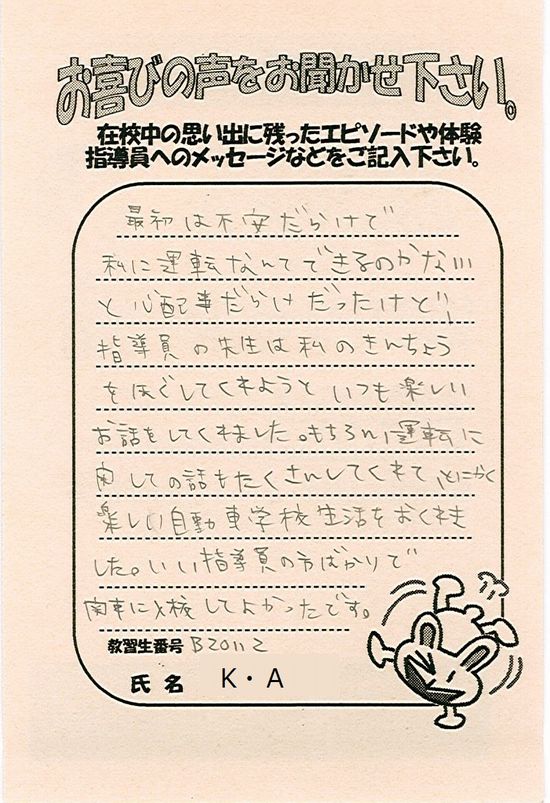 お喜びの声をお聞かせ下さい。
在校中の思い出に残ったエピソードや体験
指導員へのメッセージなどをご記入下さい。
最初は不安だらけで
私に運転なんてできるのかない…
と心配事だらけだったけど、
指導員の先生は私のきんちょう
をほぐしてくれようといつも楽しい
お話をしてくれました。もちろん、運転に
関しての話もたくさんしてくれて、とにかく
楽しい自動車学校生活をおくれま
した。いい指導員の方ばかりで
関自に入校してよかったです。
教習生番号 B20112
氏名 K・A